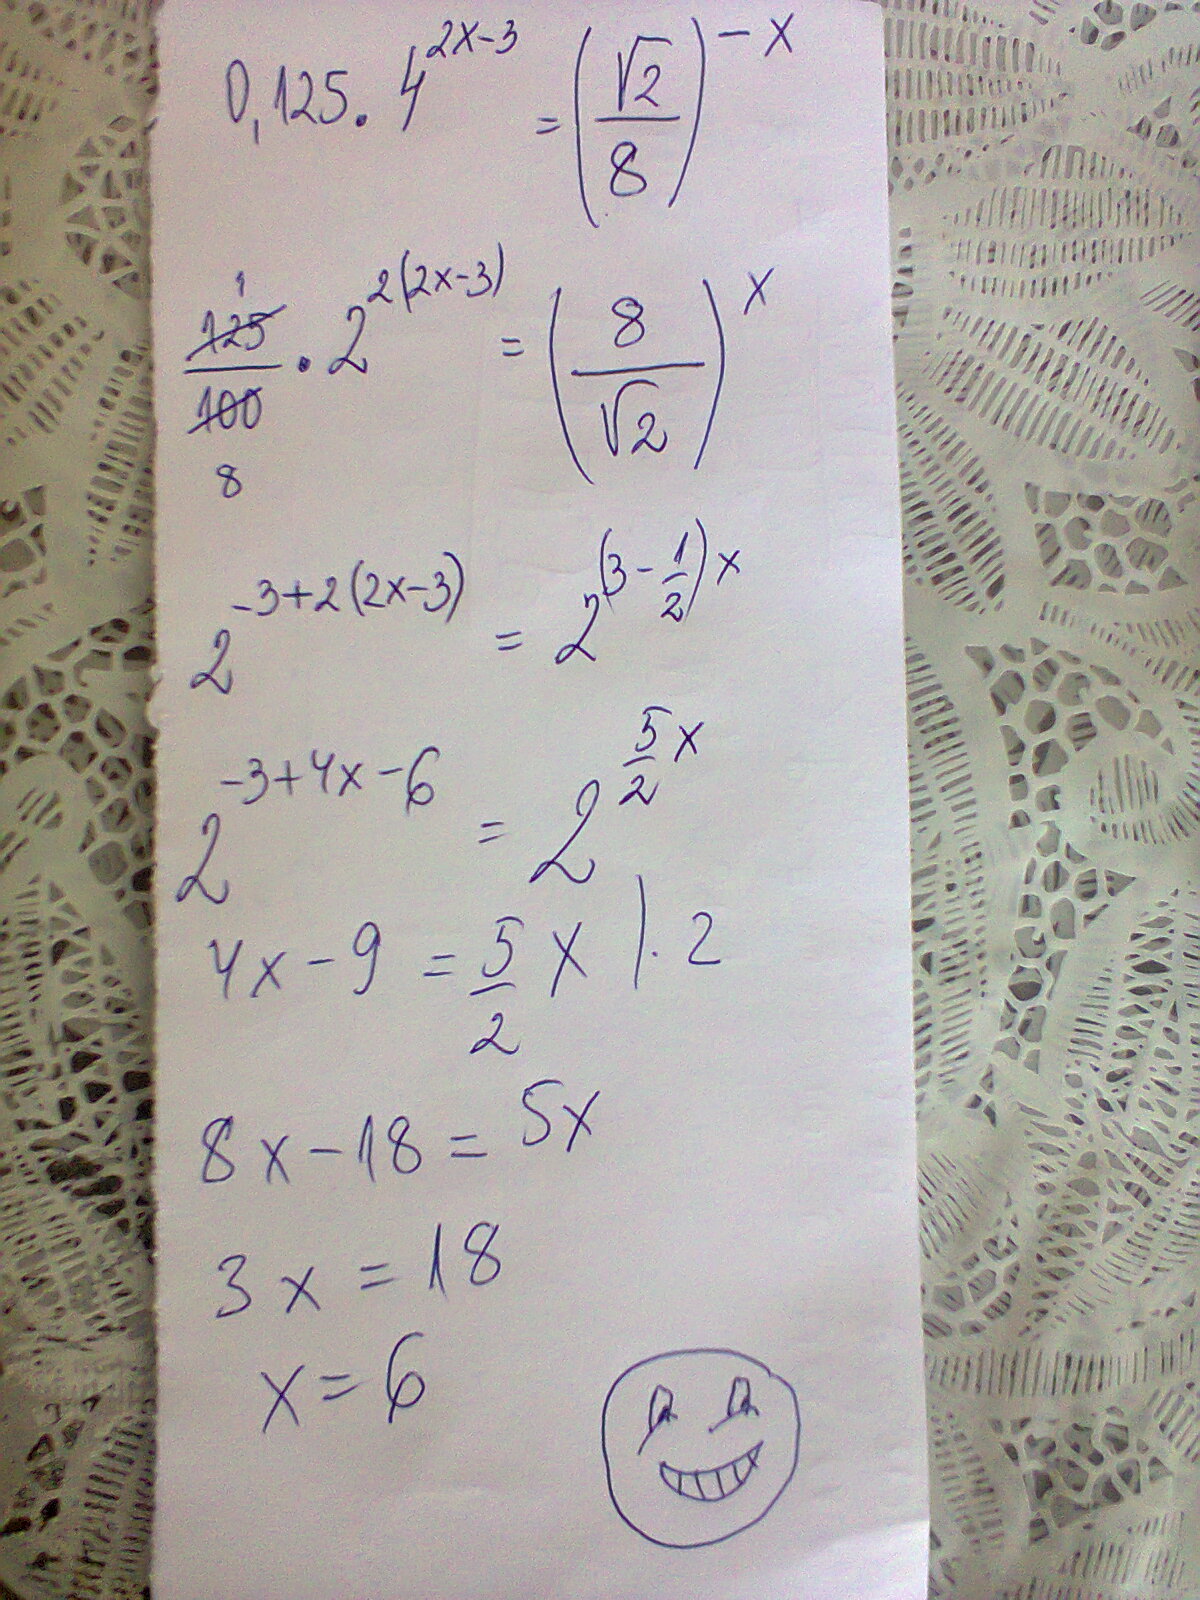 0,125 · 4^(2x-3) = (√2/8)^(-x)
125/100 1/8 · 2^(2(2x-3)) = (8/√2)^x
2^(-3+2(2x-3)) = 2^((3-1/2)x)
2^(-3+4x-6) = 2^(5/2 x)
4x-9 = 5/2 x |·2
8x-18 = 5x
3x = 18
x = 6